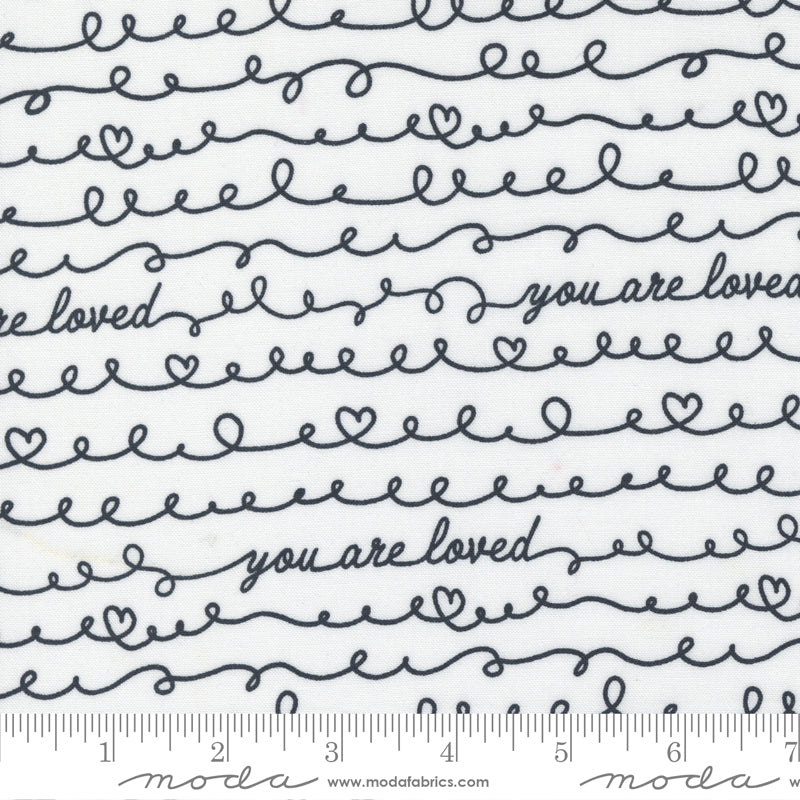 re loved you are loved
you are loved
1 2 3 4 5 6 7
moda www.modafabrics.com moda w